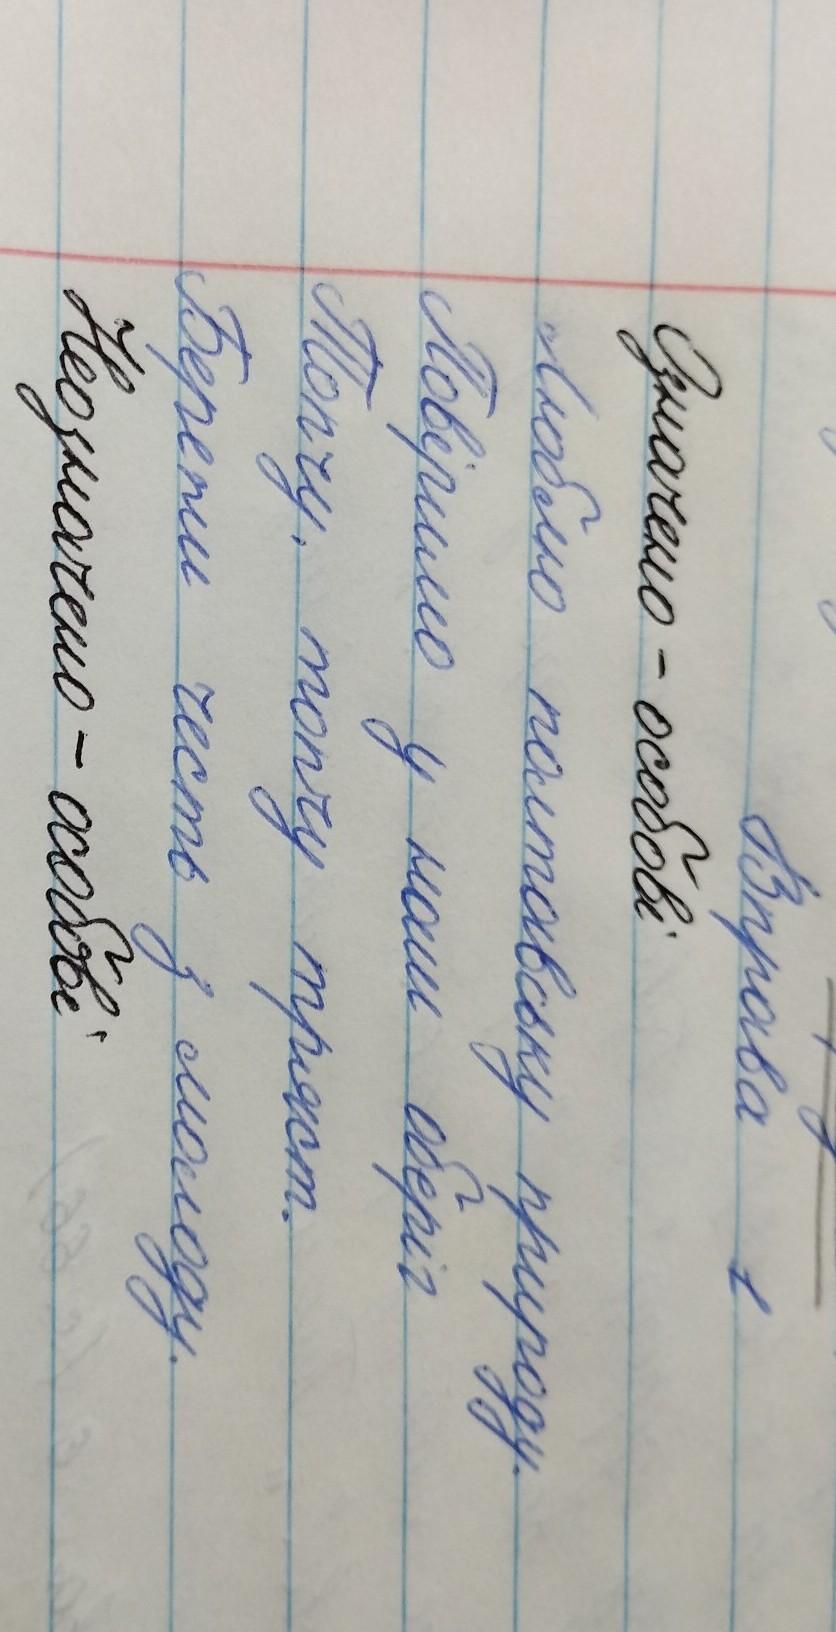 Вправа 1
Означено-особові
Люблю полтавську природу.
Повірило у наш оберіг
Топчу, топчу тряст.
Берети честь з молоду.
Неозначено-особові